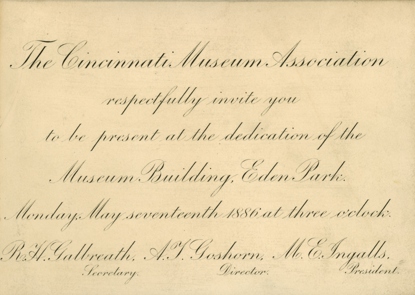 The Cincinnati Museum Association
respectfully invite you
to be present at the dedication of the
Museum Building, Eden Park.
Monday, May seventeenth 1886 at three o'clock.
R. H. Galbreath, A. T. Goshorn, M. E. Ingalls,
Secretary. Director. President.